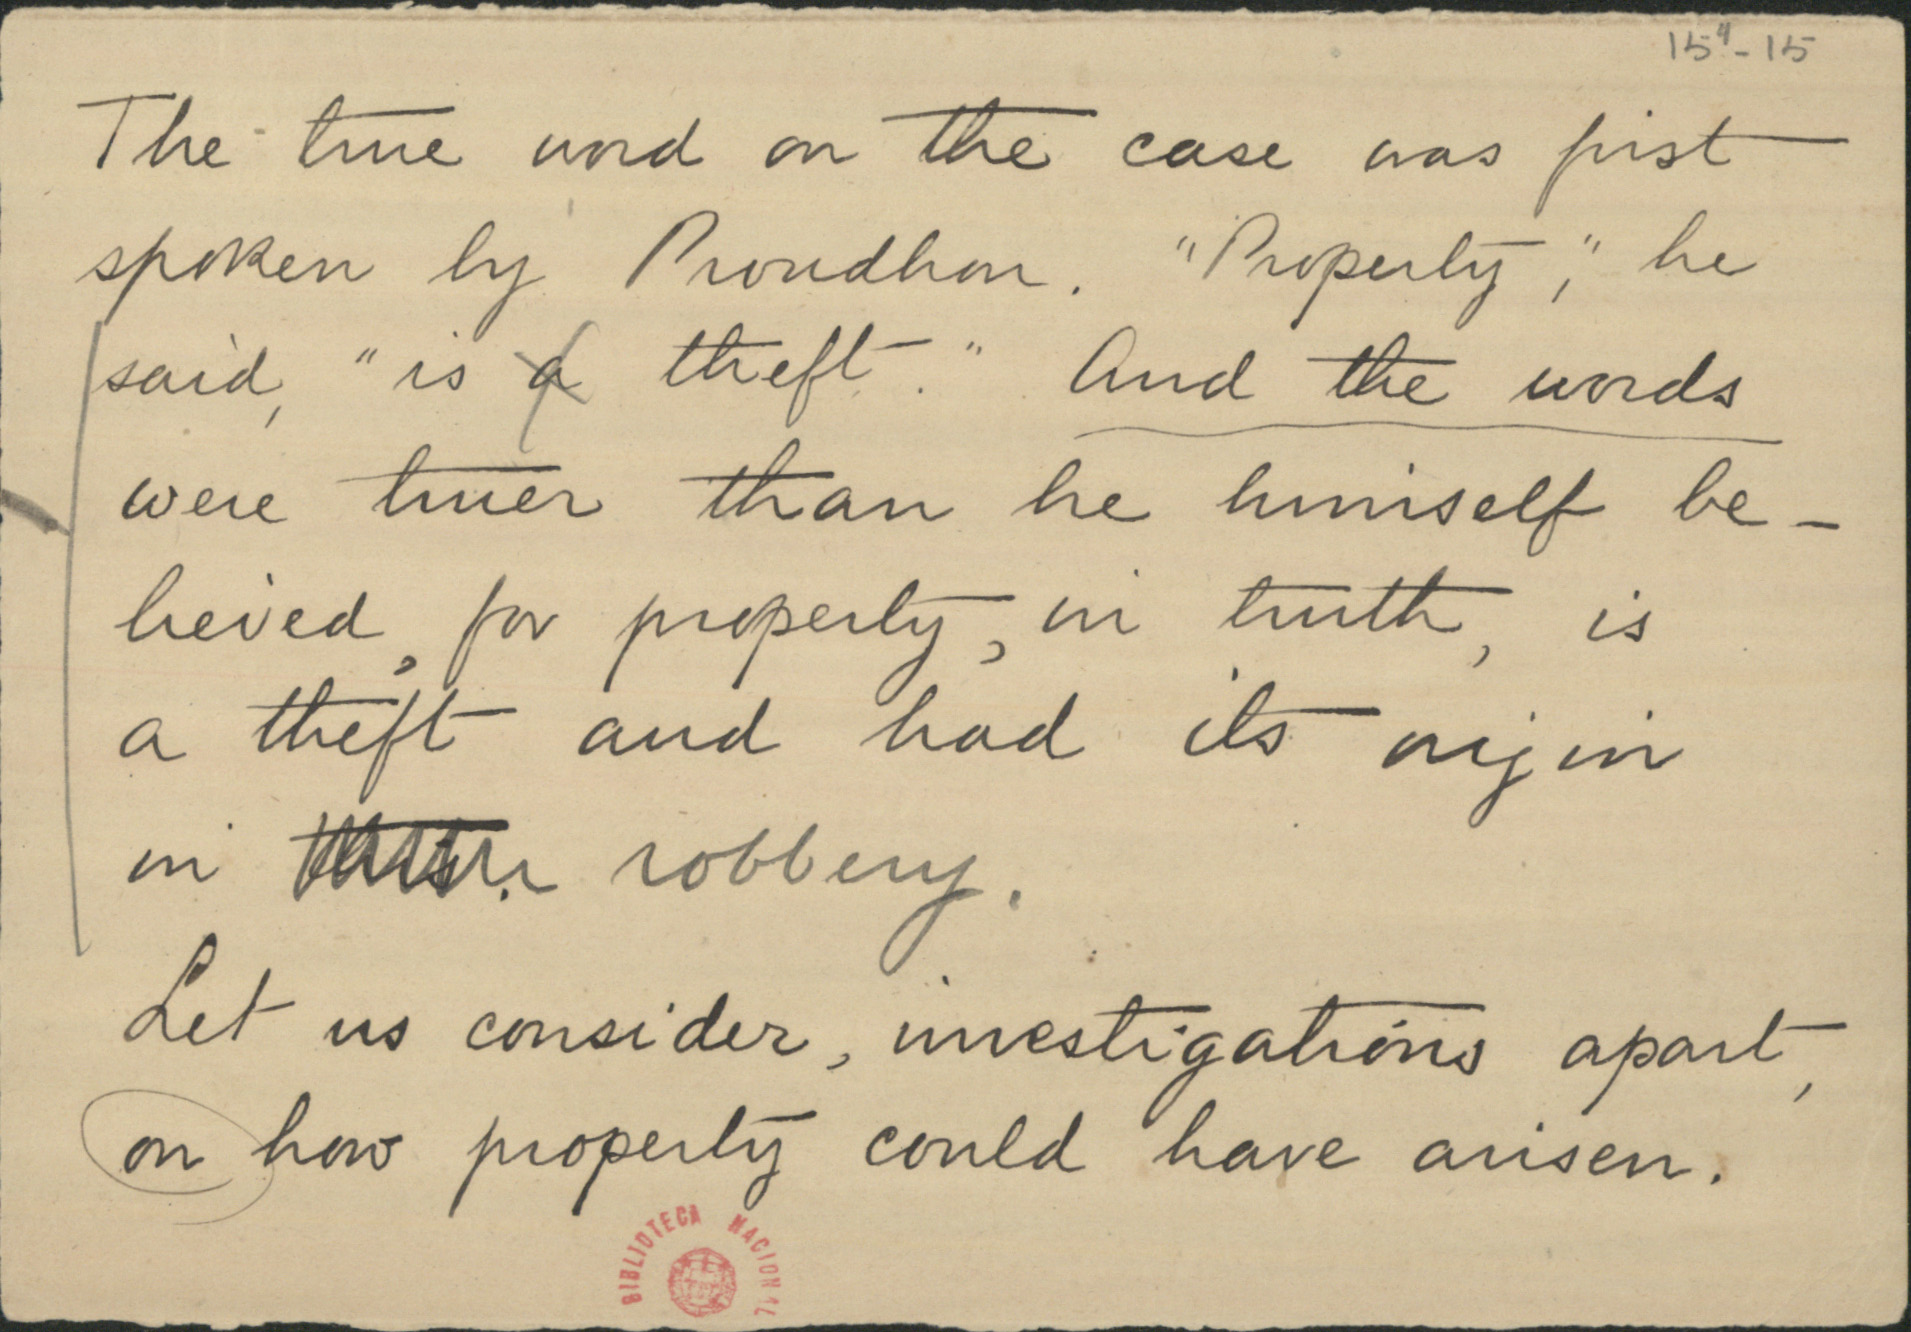 15⁴-15
The true word on the case was first
spoken by Proudhon. "Property," he
said, "is a theft." And the words
were truer than he himself be-
lieved, for property, in truth, is
a theft and had its origin
in robbery.
Let us consider, investigations apart,
on how property could have arisen.
BIBLIOTECA NACIONAL